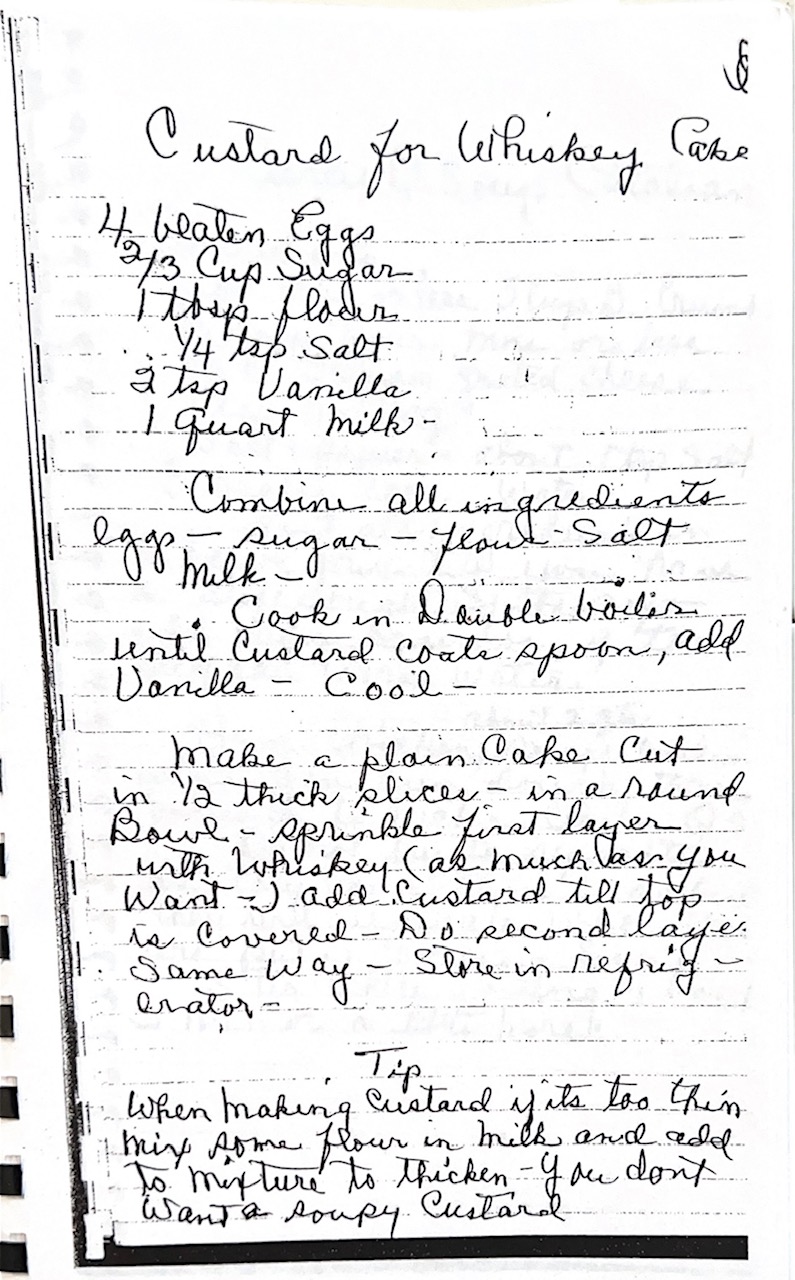 6
Custard for Whiskey Cake
4 beaten Eggs
2/3 Cup Sugar
1 tbsp flour
1/4 tsp Salt
2 tsp Vanilla
1 quart Milk -
Combine all ingredients
eggs - sugar - flour - Salt
Milk -
Cook in Double boiler
until Custard coats spoon, add
Vanilla - Cool -
Make a plain Cake Cut
in 1/2 thick slices - in a round
Bowl - sprinkle first layer
with Whiskey (as much as you
Want -) add Custard till top
is Covered - Do second laye
Same Way - Store in refrig -
erator -
Tip
When making Custard if its too thin
mix some flour in milk and add
to mixture to thicken - You dont
Want a soupy Custard